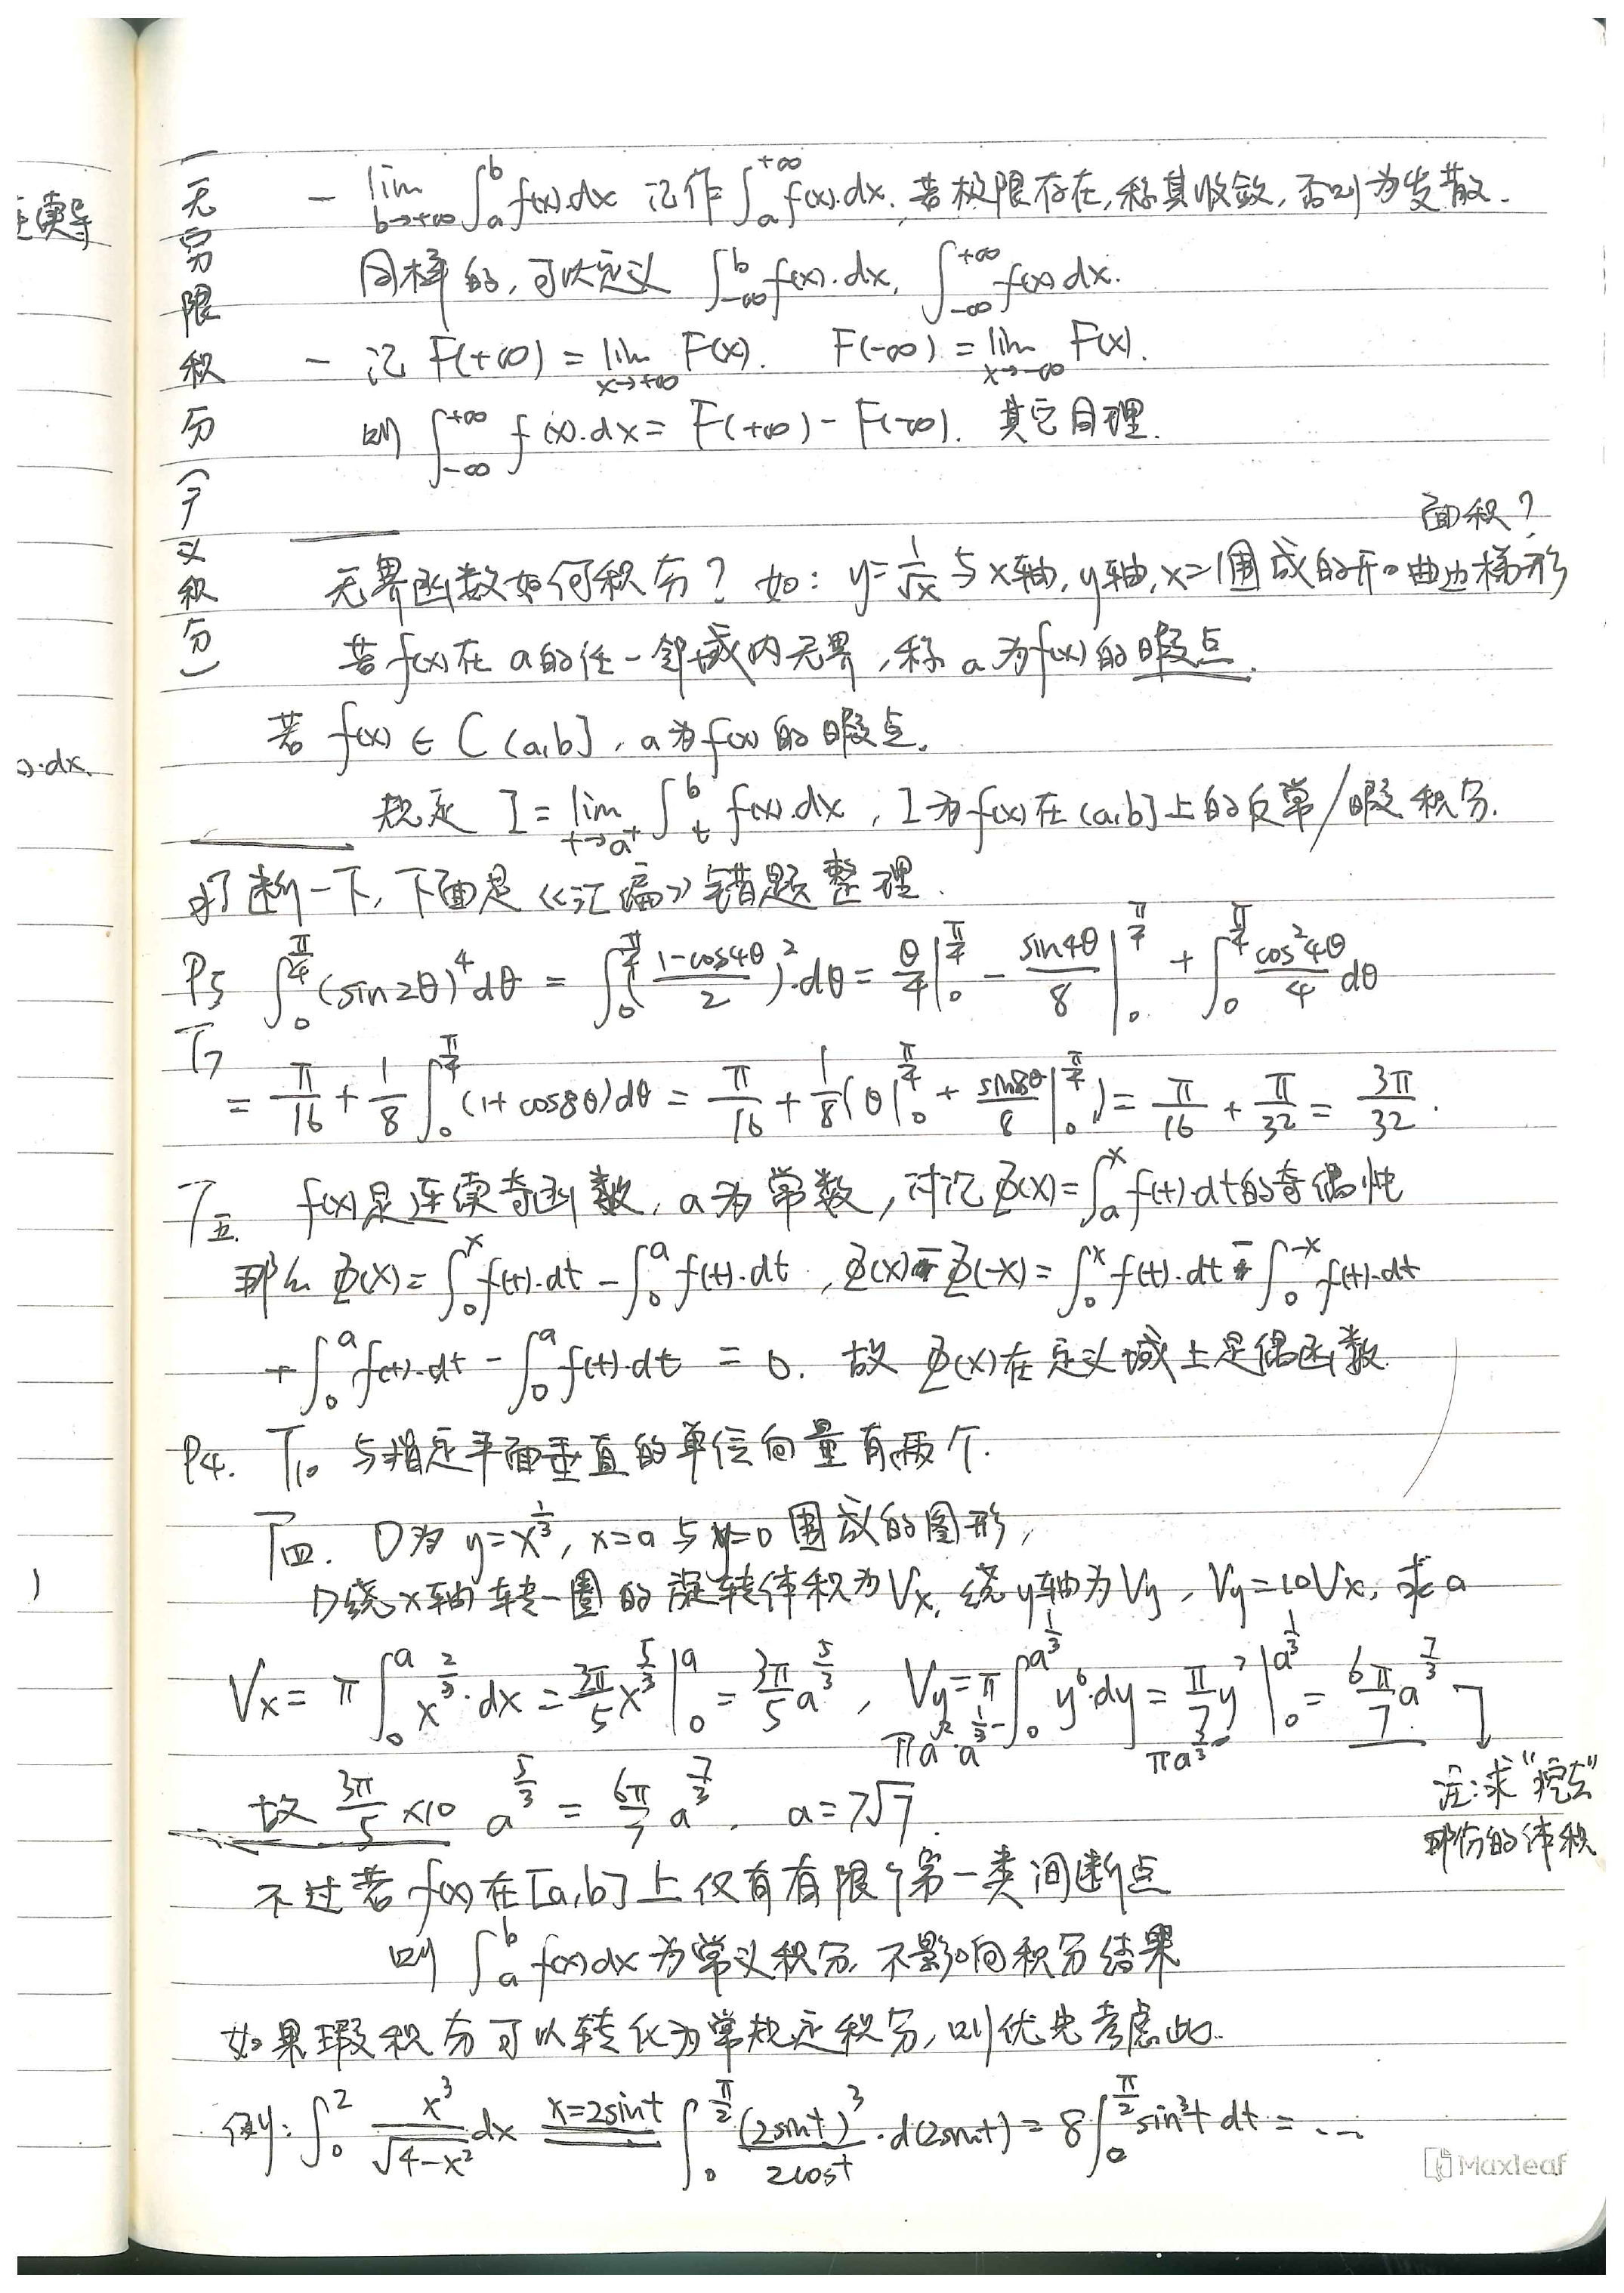 连续导
)·dx.
)
无穷限积分(广义积分)
- lim_{b→+∞} ∫_a^b f(x)·dx 记作 ∫_a^{+∞} f(x)·dx. 若极限存在,称其收敛,否则为发散.
同样的,可以定义 ∫_{-∞}^b f(x)·dx, ∫_{-∞}^{+∞} f(x)dx.
- 记 F(+∞) = lim_{x→+∞} F(x). F(-∞) = lim_{x→-∞} F(x).
则 ∫_{-∞}^{+∞} f(x)·dx = F(+∞) - F(-∞). 其它同理.
面积?
无界函数如何积分? 如: y=1/√x 与x轴,y轴,x=1围成的开口曲边梯形
若f(x)在a的任一邻域内无界,称a为f(x)的暇点.
若 f(x) ∈ C(a,b], a为f(x)的暇点.
规定 I = lim_{t→a⁺} ∫_t^b f(x)·dx, I为f(x)在(a,b]上的反常/暇积分.
打断一下,下面是《汇编》错题整理.
P5 ∫_0^{π/4} (sin2θ)^4 dθ = ∫_0^{π/4} ((1-cos4θ)/2)^2·dθ = θ/4|_0^{π/4} - sin4θ/8|_0^{π/4} + ∫_0^{π/4} cos²4θ/4 dθ
T7 = π/16 + 1/8 ∫_0^{π/4} (1+cos8θ)dθ = π/16 + 1/8(θ|_0^{π/4} + sin8θ/8|_0^{π/4}) = π/16 + π/32 = 3π/32.
T五. f(x)是连续奇函数,a为常数,讨论Φ(x)=∫_a^x f(t)·dt的奇偶性
那么Φ(x)=∫_0^x f(t)·dt - ∫_0^a f(t)·dt, Φ(x)-Φ(-x)=∫_0^x f(t)·dt - ∫_0^{-x} f(t)·dt
+ ∫_0^a f(t)·dt - ∫_0^a f(t)·dt = 0. 故 Φ(x)在定义域上是偶函数.
P4. T10 与指定平面垂直的单位向量有两个.
T四. D为 y=x^{1/3}, x=a与y=0围成的图形,
D绕x轴转一圈的旋转体积为Vx, 绕y轴为Vy, Vy=10Vx, 求a
Vx = π∫_0^a x^{2/3}·dx = 3π/5 x^{5/3}|_0^a = 3π/5 a^{5/3}, Vy = π∫_0^{a^{1/3}} y^6·dy = π/7 y^7|_0^{a^{1/3}} = 6π/7 a^{7/3}
πa²·a^{1/3}- πa^{7/3}-
注:求"挖去"
那份的体积
故 3π/5 ×10 a^{5/3} = 6π/7 a^{7/3}, a=7√7.
不过若f(x)在[a,b]上仅有有限个第一类间断点
则 ∫_a^b f(x)dx为常义积分,不影响积分结果
如果瑕积分可以转化为常规定积分,则优先考虑此.
例: ∫_0^2 x³/√(4-x²) dx x=2sint ∫_0^{π/2} (2sint)³/2cost·d(2sint) = 8∫_0^{π/2} sin³t dt = ...
Maxleaf